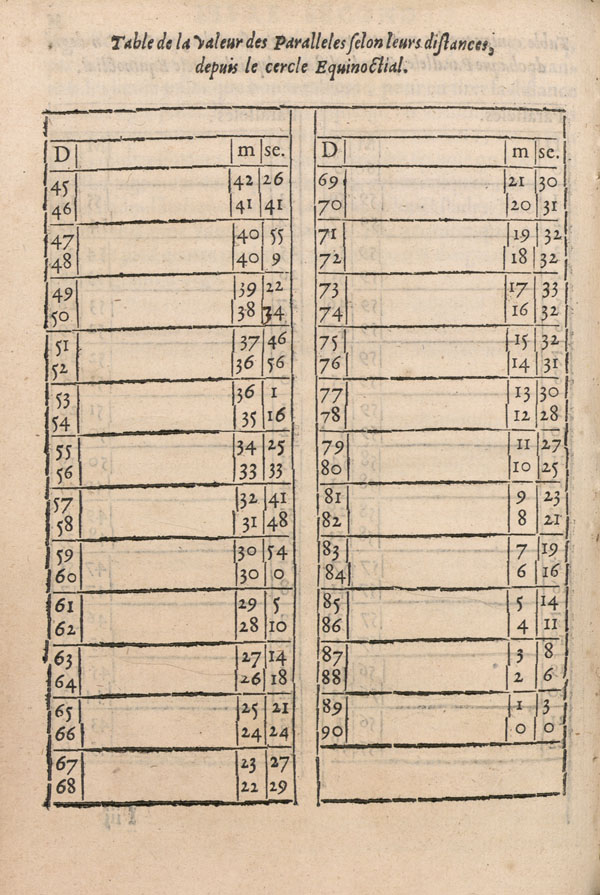 Table de la Valeur des Paralleles selon leurs distances,
depuis le cercle Equinoctial.
D m se.
45 42 26
46 41 41
47 40 55
48 40 9
49 39 22
50 38 34
51 37 46
52 36 56
53 36 1
54 35 16
55 34 25
56 33 33
57 32 41
58 31 48
59 30 54
60 30 0
61 29 5
62 28 10
63 27 14
64 26 18
65 25 21
66 24 24
67 23 27
68 22 29
D m se.
69 21 30
70 20 31
71 19 32
72 18 32
73 17 33
74 16 32
75 15 32
76 14 31
77 13 30
78 12 28
79 11 27
80 10 25
81 9 23
82 8 21
83 7 19
84 6 16
85 5 14
86 4 11
87 3 8
88 2 6
89 1 3
90 0 0